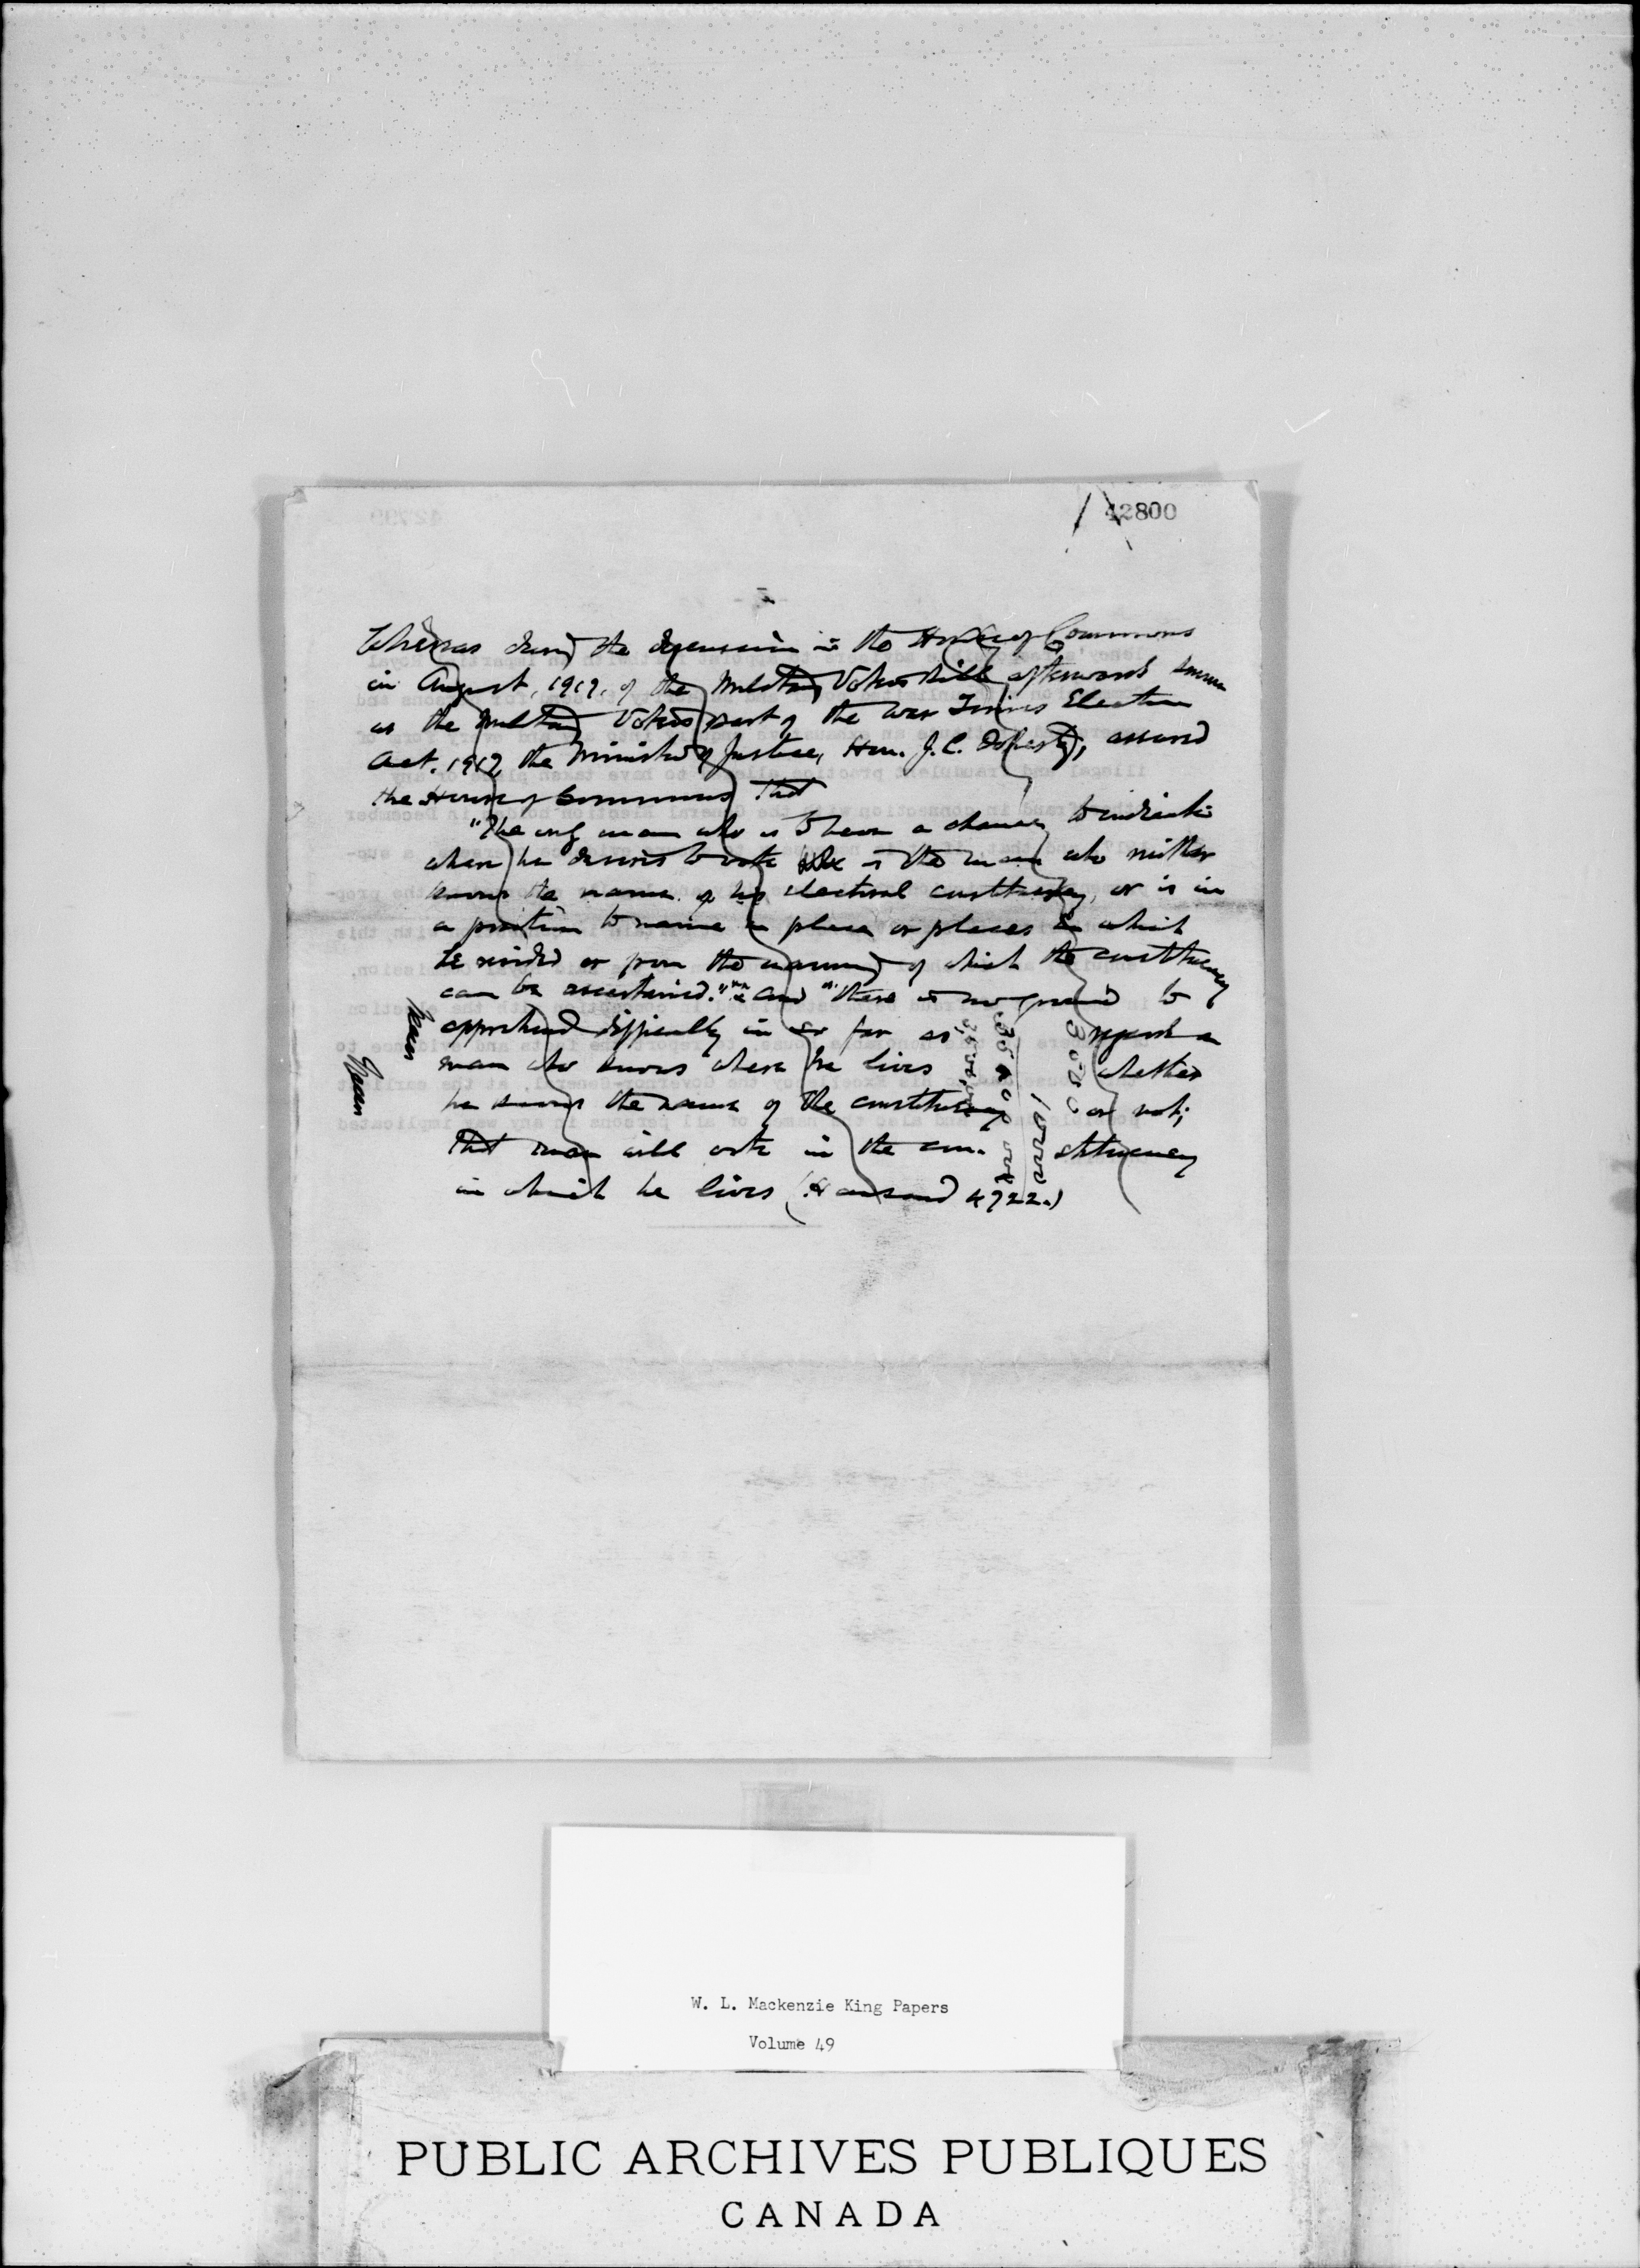 42800
Whereas during the discussion in the House of Commons
in August, 1917, of the Military Voters Bill afterwards known
as the Military Voters part of the War Times Election
Act, 1917, the Minister of Justice, Hon. J. C. Doherty, assured
the House of Commons that
"The only man who is to have a chance to indicate
where he desires to vote is the man who neither
knows the name of his electoral constituency, or is in
a position to name a place or places in which
he resided or from the naming of which the constituency
can be ascertained." and "there is no ground to
apprehend difficulty in so far as regards a
man who knows where he lives whether
he knows the name of the constituency or not;
that man will vote in the con- stituency
in which he lives (Hansard 4722.)
W. L. Mackenzie King Papers
Volume 49
PUBLIC ARCHIVES PUBLIQUES
CANADA